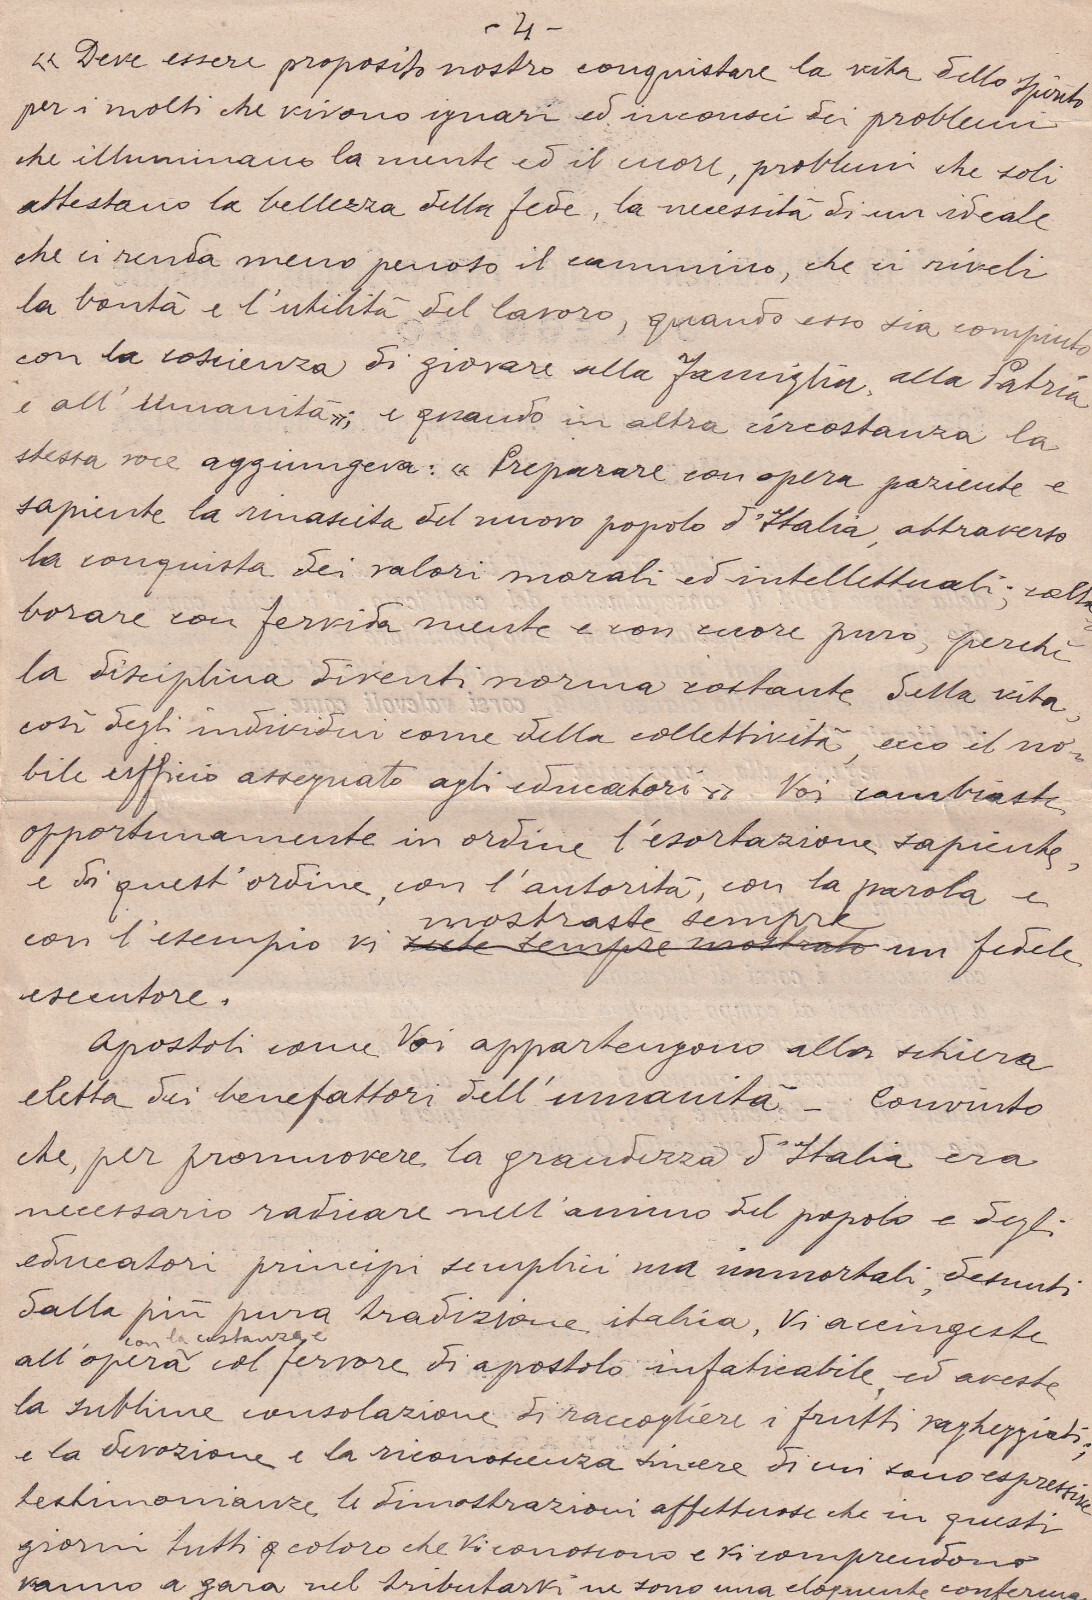 - 4 -
« Deve essere proposito nostro conquistare la vita dello spirito
per i molti che vivono ignari ed inconsci dei problemi
che illuminano la mente ed il cuore, problemi che soli
attestano la bellezza della fede, la necessità di un ideale
che ci renda meno penoso il cammino, che ci riveli
la bontà e l'utilità del lavoro, quando esso sia compiuto
con la coscienza di giovare alla Famiglia, alla Patria
e all'Umanità»; e quando in altra circostanza la
stessa voce aggiungeva: « Preparare con opera paziente e
sapiente la rinascita del nuovo popolo d'Italia, attraverso
la conquista dei valori morali ed intellettuali; colla-
borare con fervida mente e con cuore puro, perchè
la disciplina diventi norma costante della vita,
così degli individui come della collettività, ecco il no-
bile ufficio assegnato agli educatori» Voi cambiaste
opportunamente in ordine l'esortazione sapiente,
e di quest'ordine, con l'autorità, con la parola e
mostraste sempre
con l'esempio vi siete sempre mostrato un fedele
esecutore.
Apostoli come Voi appartengono alla schiera
eletta dei benefattori dell'umanità - Convinto
che, per promuovere la grandezza d'Italia era
necessario radicare nell'animo del popolo e degli
educatori principi semplici ma immortali, desunti
dalla più pura tradizione italica, Vi accingeste
con la costanza e
all'opera col fervore di apostolo infaticabile, ed aveste
la sublime consolazione di raccogliere i frutti vagheggiati;
e la devozione e la riconoscenza sincere di cui sono espressive
testimonianze le dimostrazioni affettuose che in questi
giorni tutti coloro che Vi conoscono e Vi comprendono
vanno a gara nel tributarVi ne sono una eloquente conferma